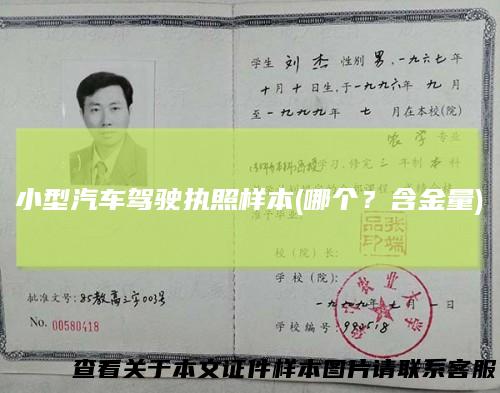 学生 刘杰 性别 男,一九六七年
十月十日生,于一九九六年 九月
至一九九九年 七月在本校(院)
农学专业
学习,修完三年制本科
小型汽车驾驶执照样本(哪个?含金量)
准予毕业。
校(院)长:
张瑞品印
学校(院):
农业大学
一九九九年七月一日
批准文号:85教高三字003号
No. 00580418
学校编号:994518
查看关于本文证件样本图片请联系客服